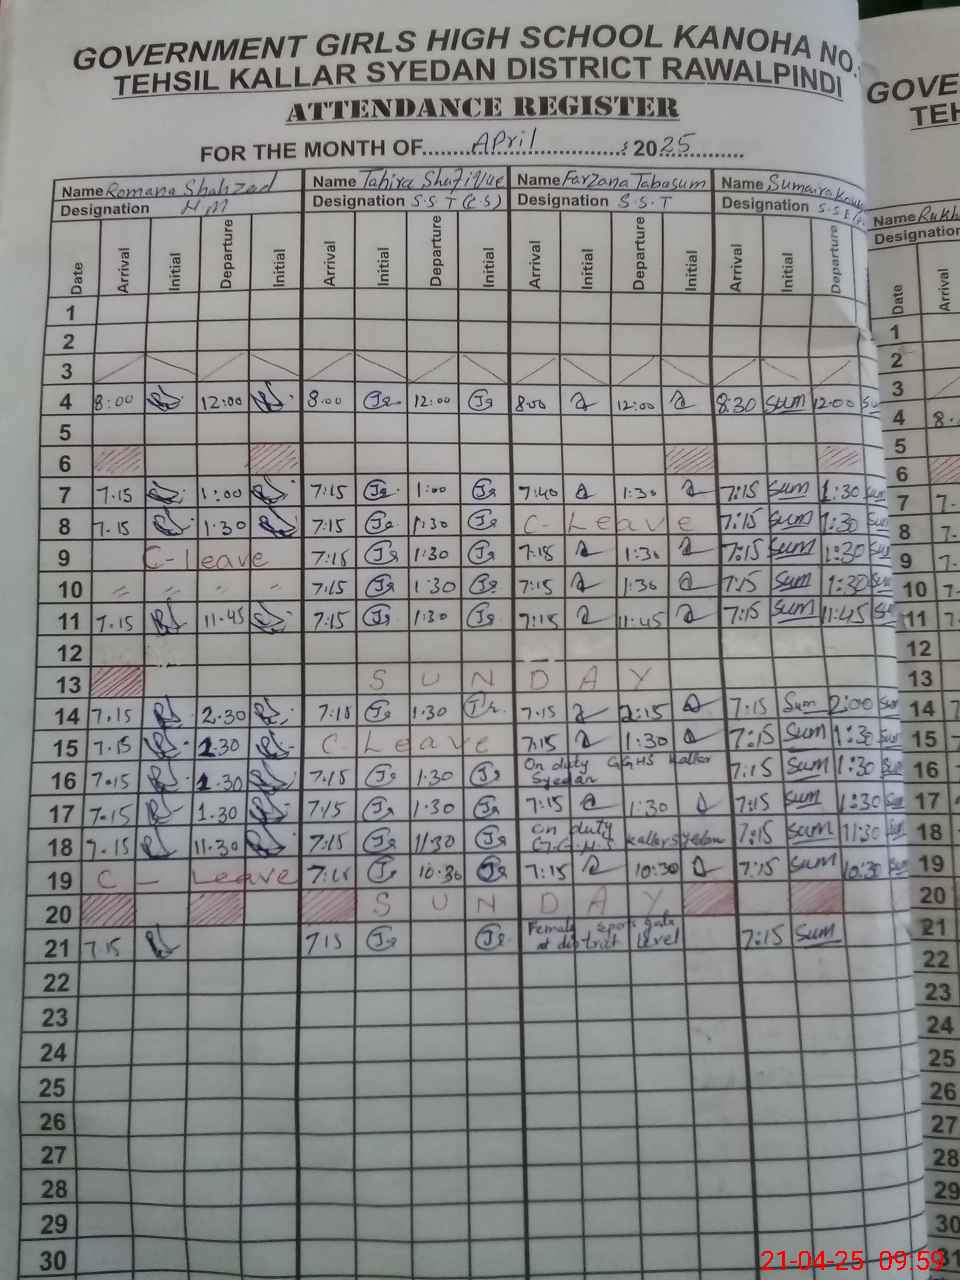 GOVERNMENT GIRLS HIGH SCHOOL KANOHA NO.
TEHSIL KALLAR SYEDAN DISTRICT RAWALPINDI
ATTENDANCE REGISTER
FOR THE MONTH OF April 2025
Name Romana Shahzad Name Tahira Shafique Name Farzana Tabasum Name Sumaira
Designation H M Designation S.S.T (C.S) Designation S.S.T Designation
Date Arrival Initial Departure Initial Arrival Initial Departure Initial Arrival Initial Departure Initial Arrival Initial Departure
1
2
3
4 8:00 12:00 8.00 12:00 800 12:00 8:30 Sum 12:00
5
6
7 7.15 1:00 7:15 1:00 7:40 1:30 7:15 Sum 1:30 Sum
8 7.15 1.30 7:15 1:30 C-Leave 7:15 Sum 1:30
9 C-leave 7:15 1:30 7:15 1:30 7:15 Sum 1:30
10 " " " " 7:15 1:30 7:15 1:30 7:15 Sum 1:30
11 7.15 11.45 7:15 1:30 7:15 11:45 7:15 Sum 11:45
12
13 SUNDAY
14 7.15 2.30 7:15 1.30 7.15 2:15 7.15 Sum 2:00 Sum
15 7.15 1.30 C Leave 7:15 1:30 7:15 Sum 1:30
16 7.15 1.30 7.15 1.30 On duty GGHS Kallar Syedan 7:15 Sum 1:30
17 7.15 1.30 7:15 1:30 7:15 1:30 7:15 Sum 1:30
18 7.15 11.30 7:15 11:30 on duty G.G.H.S kallar Syedan 7:15 Sum 11:30
19 C - Leave 7:15 10:30 7:15 10:30 7:15 Sum 10:30
20 SUNDAY
21 7.15 7:15 Female sports gala at district level 7:15 Sum
22
23
24
25
26
27
28
29
30
GOVE
TEH
Name Rukh
Designation
Date Arrival
1
2
3
4 8.
5
6
7 7.
8 7.
9 7.
10 7.
11 7.
12
13
14 7
15
16
17
18
19
20
21
22
23
24
25
26
27
28
29
30
31
21-04-25 09:59